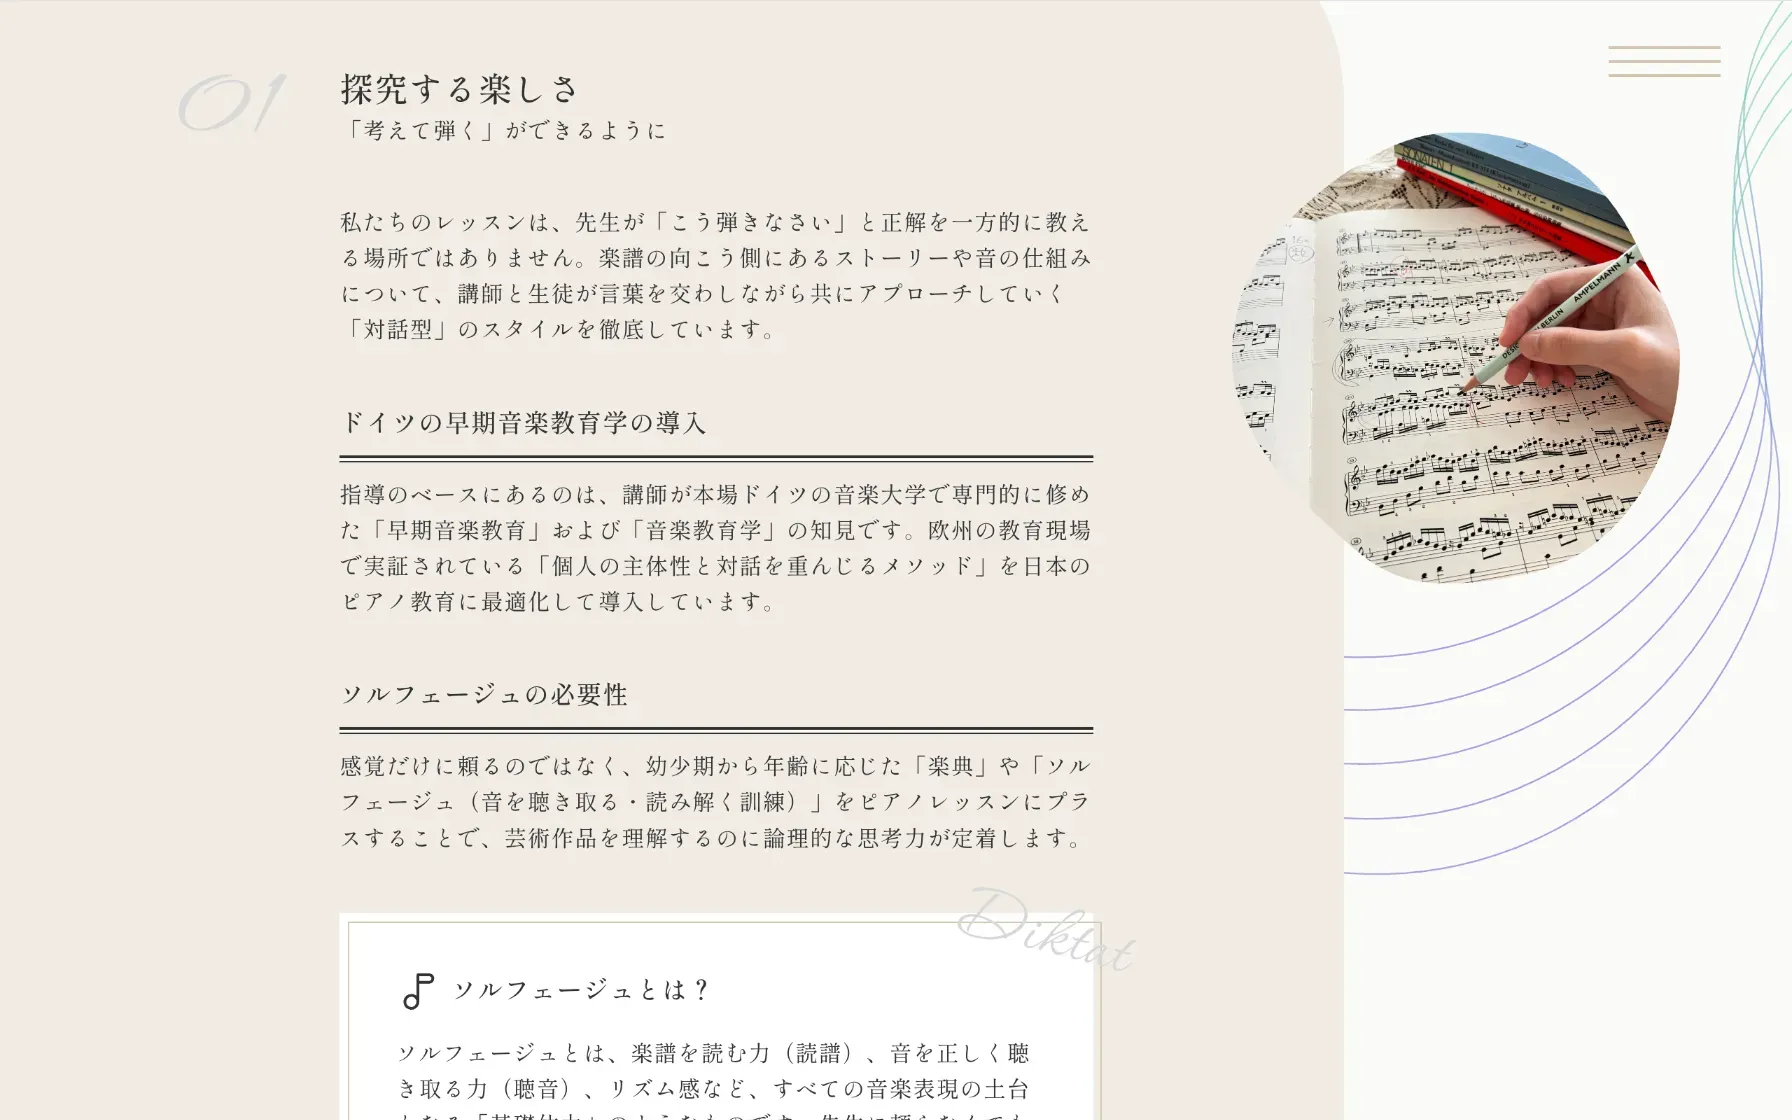 01
探究する楽しさ
「考えて弾く」ができるように
私たちのレッスンは、先生が「こう弾きなさい」と正解を一方的に教え
る場所ではありません。楽譜の向こう側にあるストーリーや音の仕組み
について、講師と生徒が言葉を交わしながら共にアプローチしていく
「対話型」のスタイルを徹底しています。
ドイツの早期音楽教育学の導入
指導のベースにあるのは、講師が本場ドイツの音楽大学で専門的に修め
た「早期音楽教育」および「音楽教育学」の知見です。欧州の教育現場
で実証されている「個人の主体性と対話を重んじるメソッド」を日本の
ピアノ教育に最適化して導入しています。
ソルフェージュの必要性
感覚だけに頼るのではなく、幼少期から年齢に応じた「楽典」や「ソル
フェージュ（音を聴き取る・読み解く訓練）」をピアノレッスンにプラ
スすることで、芸術作品を理解するのに論理的な思考力が定着します。
Diktat
ソルフェージュとは？
ソルフェージュとは、楽譜を読む力（読譜）、音を正しく聴
き取る力（聴音）、リズム感など、すべての音楽表現の土台
SONATEN
AMPELMANN
BERLIN